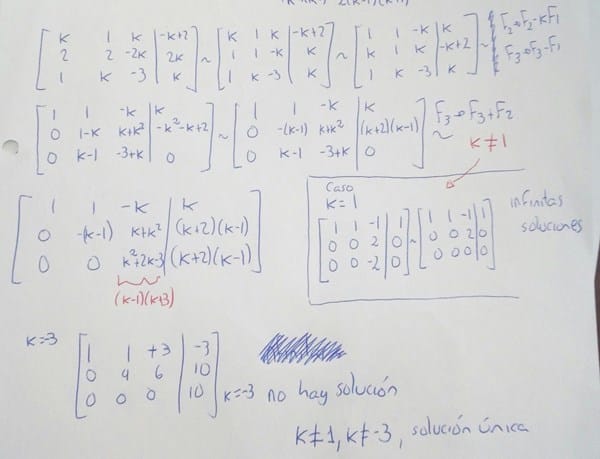 2(k-1)(k+1)
[k 1 k | -k+2; 2 2 -2k | 2k; 1 k -3 | k] ~ [k 1 k | -k+2; 1 1 -k | k; 1 k -3 | k] ~ [1 1 -k | k; k 1 k | -k+2; 1 k -3 | k] ~ F2→F2-kF1
F3→F3-F1
[1 1 -k | k; 0 1-k k+k² | -k²-k+2; 0 k-1 -3+k | 0] ~ [1 1 -k | k; 0 -(k-1) k+k² | (k+2)(k-1); 0 k-1 -3+k | 0] F3→F3+F2
~
k≠1
[1 1 -k | k; 0 -(k-1) k+k² | (k+2)(k-1); 0 0 k²+2k-3 | (k+2)(k-1)]
(k-1)(k+3)
Caso
k=1
[1 1 -1 | 1; 0 0 2 | 0; 0 0 -2 | 0] ~ [1 1 -1 | 1; 0 0 2 | 0; 0 0 0 | 0]
infinitas
soluciones
k=-3 [1 1 +3 | -3; 0 4 6 | 10; 0 0 0 | 10] k=-3 no hay solución
k≠1, k≠-3, solución única